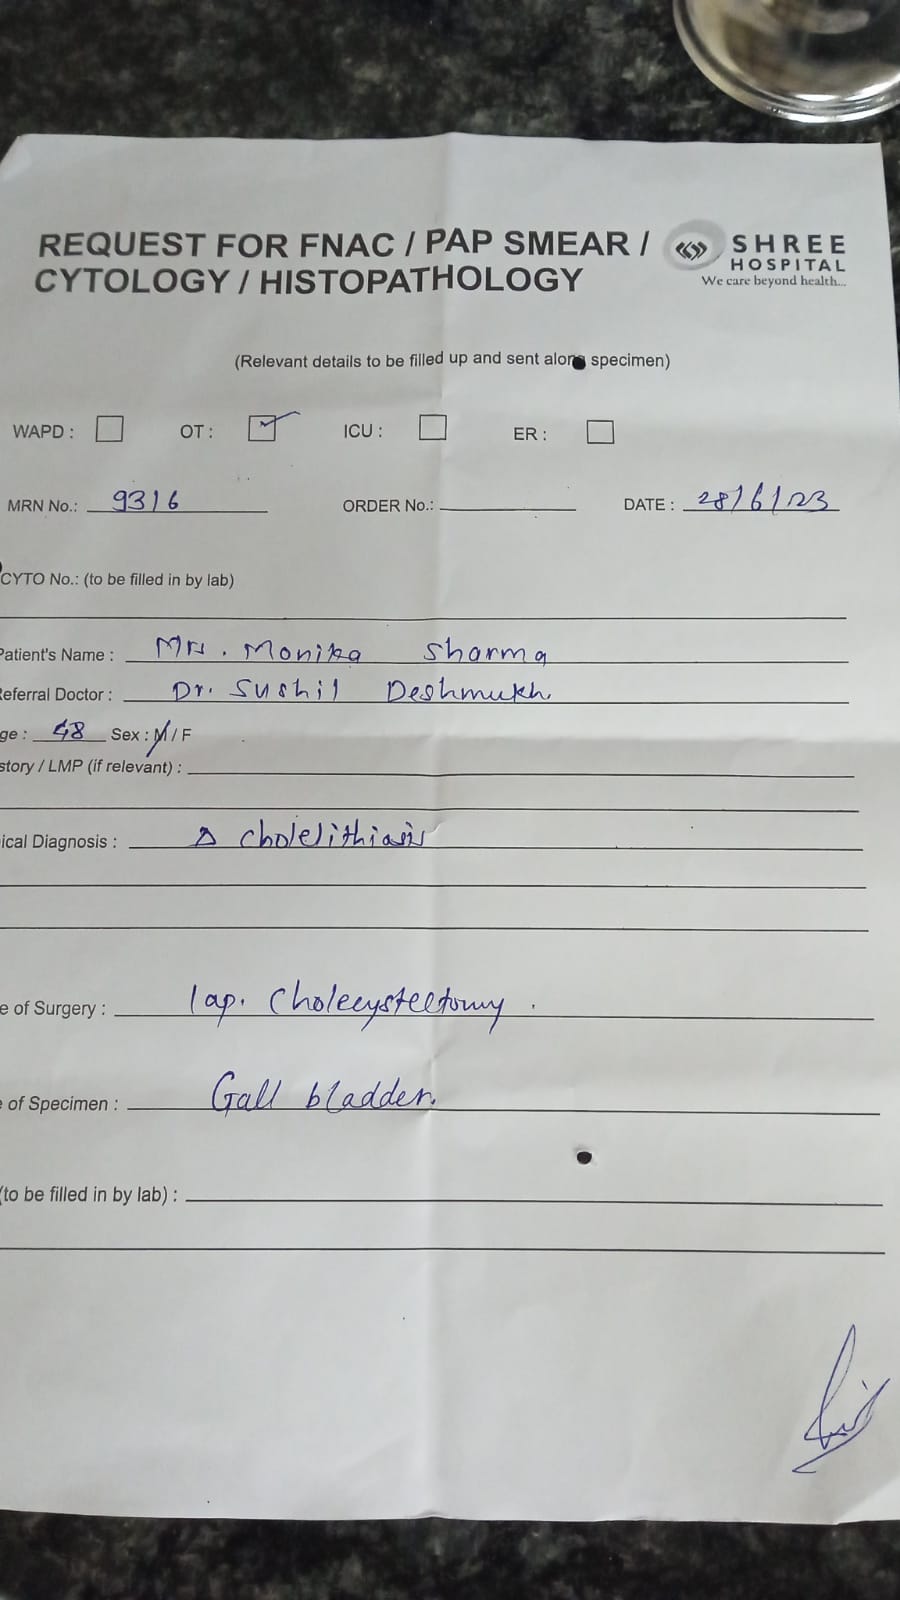 REQUEST FOR FNAC / PAP SMEAR /
CYTOLOGY / HISTOPATHOLOGY
SHREE
HOSPITAL
We care beyond health...
(Relevant details to be filled up and sent along specimen)
WAPD : OT : ICU : ER :
MRN No.: 9316 ORDER No.: DATE : 28/6/23
CYTO No.: (to be filled in by lab)
Patient's Name : Mrs. Monika Sharma
Referral Doctor : Dr. Sushil Deshmukh
ge : 48 Sex : M / F
story / LMP (if relevant) :
ical Diagnosis : Δ cholelithiasis
e of Surgery : lap. Cholecystectomy.
of Specimen : Gall bladder.
(to be filled in by lab) :